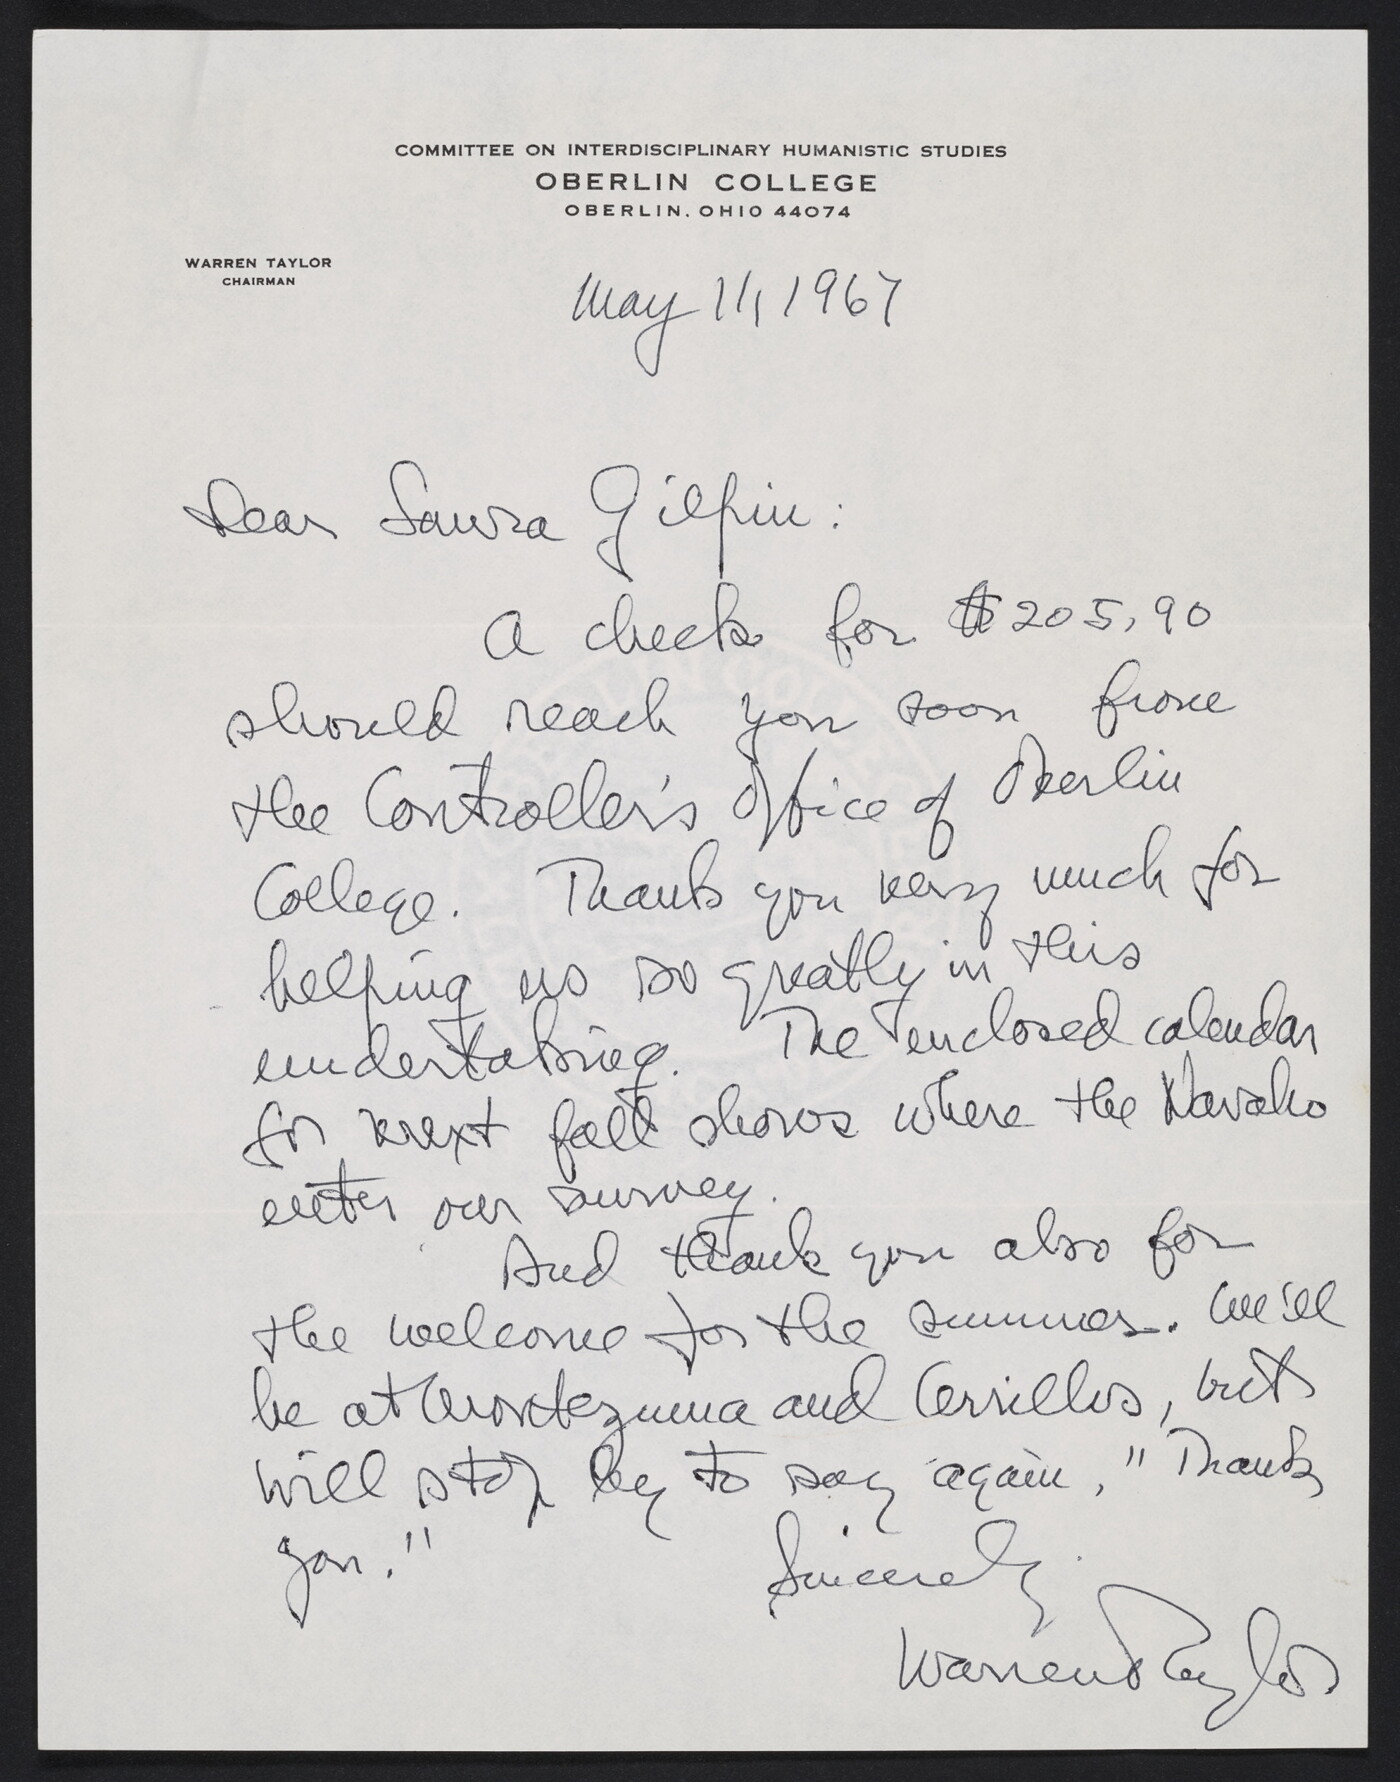 COMMITTEE ON INTERDISCIPLINARY HUMANISTIC STUDIES
OBERLIN COLLEGE
OBERLIN, OHIO 44074
WARREN TAYLOR
CHAIRMAN
May 11, 1967
Dear Laura Gilpin:
A check for $205.90
should reach you soon from
the Controller's Office of Oberlin
College. Thank you very much for
helping us so greatly in this
undertaking. The enclosed calendar
for next fall shows where the Navaho
enter our survey.
And thank you also for
the welcome for the summer. We'll
be at Montezuma and Cerrillos, but
will stop by to say again, "Thank
you."
Sincerely
Warren Taylor